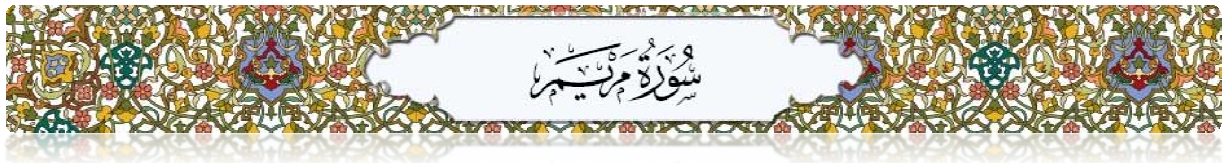 سُورَةُ مَرْيَم